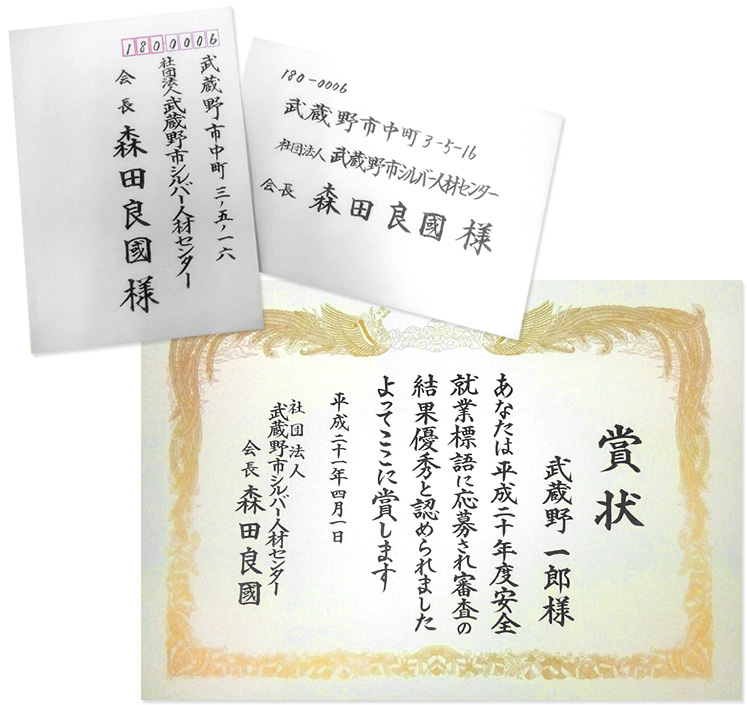 1800006
武蔵野市中町三ノ五ノ一六
社団法人武蔵野市シルバー人材センター
会長 森田良國様
180-0006
武蔵野市中町3-5-16
社団法人 武蔵野市シルバー人材センター
会長 森田良國 様
賞状
武蔵野一郎様
あなたは平成二十年度安全
就業標語に応募され審査の
結果優秀と認められました
よってここに賞します
平成二十一年四月一日
社団法人
武蔵野市シルバー人材センター
会長 森田良國